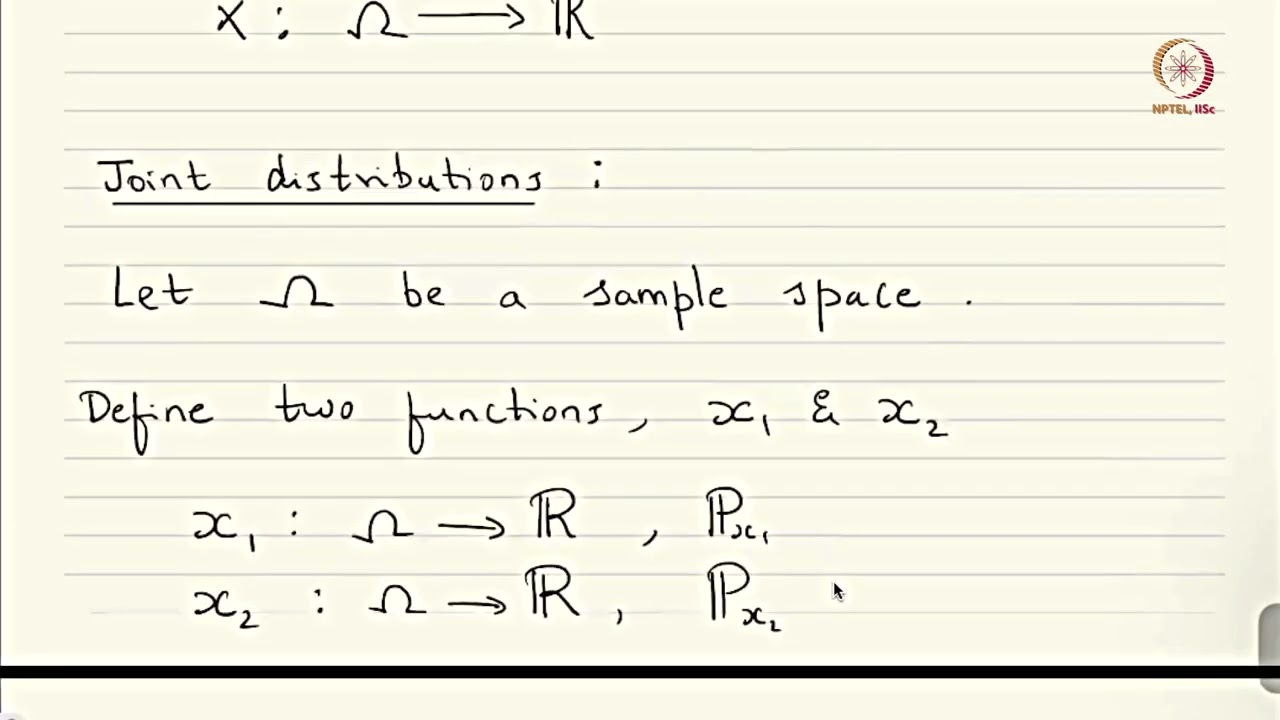 X : Ω → ℝ
NPTEL, IISc
Joint distributions :
Let Ω be a sample space .
Define two functions, x₁ & x₂
x₁ : Ω → ℝ , ℙₓ₁
x₂ : Ω → ℝ , ℙₓ₂